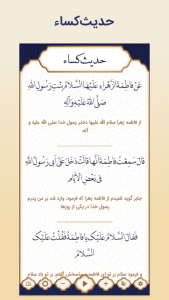 حدیث کساء
حدیث کساء
عَنْ فاطِمَةَ الزَّهْراءِ عَلَیْهَا السَّلامُ بِنْتِ رَسُولِ اللّهِ
صَلَّی اللّهُ عَلَیْهِ وَ آلِهِ
از فاطمه زهرا سلام الله علیها دختر رسول خدا صلی الله علیه و
آله
قالَ سَمِعْتُ فاطِمَةَ اَنَّها قالَتْ دَخَلَ عَلَیَّ اَبی رَسُولُ اللّهِ
فی بَعْضِ الْاَیَّامِ
جابر گوید شنیدم از فاطمه زهرا که فرمود: وارد شد بر من پدرم
رسول خدا در یکی از روزها
فَقالَ السَّلامُ عَلَیْکِ یا فاطِمَةُ فَقُلْتُ عَلَیْکَ
السَّلامُ
و فرمود: سلام بر تو ای فاطمه